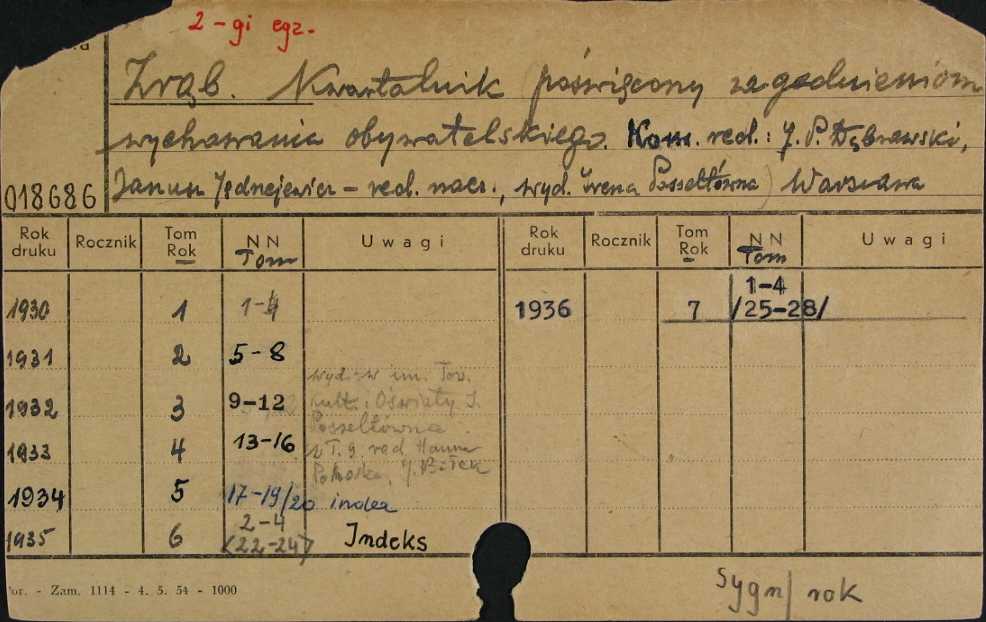 2-gi egz.
Zrąb. Kwartalnik poświęcony zagadnieniom
wychowania obywatelskiego. Kom. red.: J. P. Dąbrowski,
018686 Janusz Jędrzejewicz - red. nacz., wyd. Irena Posseltówna) Warszawa
Rok druku Rocznik Tom Rok NN Tom Uwagi Rok druku Rocznik Tom Rok NN Tom Uwagi
1930 1 1-4 1936 7 1-4 /25-28/
1931 2 5-8
wyd. w im. Tow.
1932 3 9-12 Kult. i Oświaty J.
Posseltówna
1933 4 13-16 z T. 9. red. Hanna
Pohoska,
1934 5 17-19/20 index
1935 6 2-4 (22-24) Indeks
or. - Zam. 1114 - 4. 5. 54 - 1000
Sygn/ rok